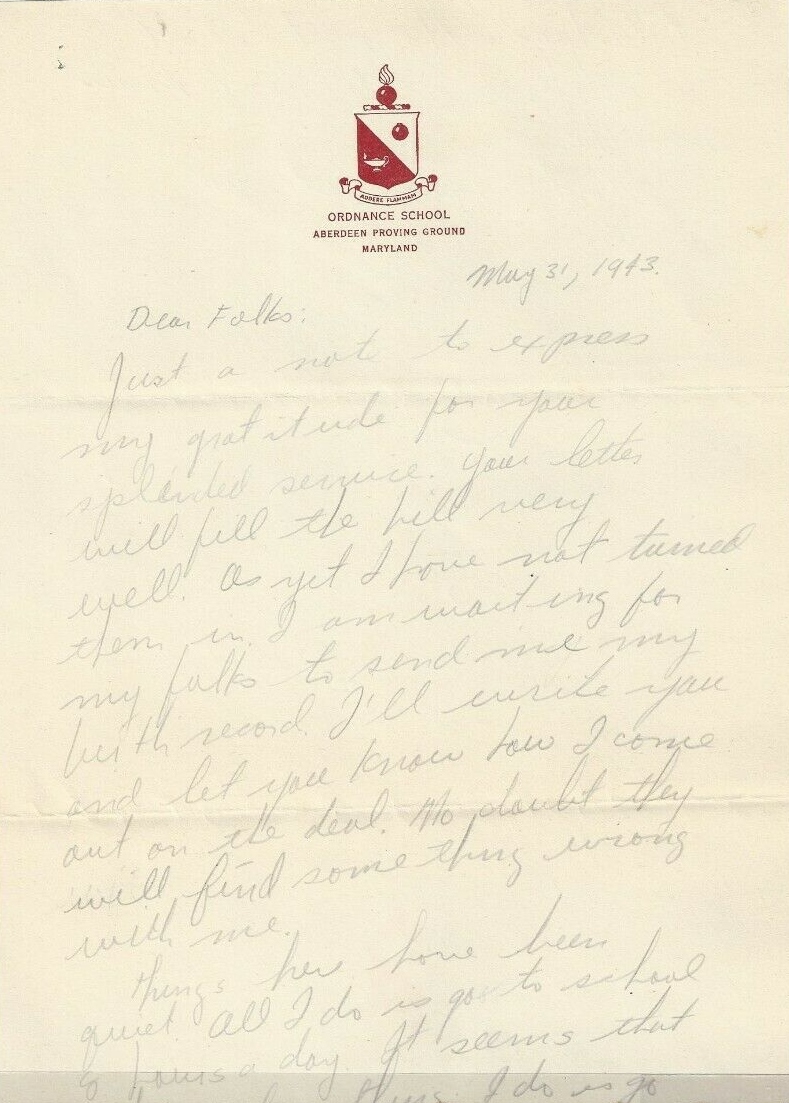 ADDERE FLAMMAM
ORDNANCE SCHOOL
ABERDEEN PROVING GROUND
MARYLAND
May 31, 1943.
Dear Folks:
Just a note to express
my gratitude for your
splended service. Your letter
will fill the bill very
well. As yet I have not turned
them in. I am waiting for
my folks to send me my
birth record. I'll write you
and let you know how I come
out on the deal. No doubt they
will find some thing wrong
with me.
Things here have been
quiet. All I do is go to school
hours a day. It seems that
thing I do is go